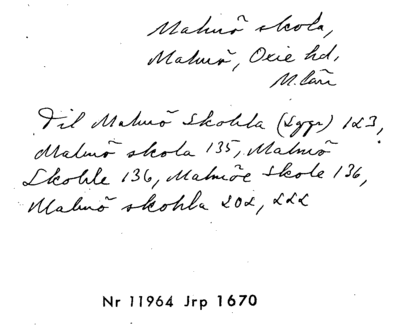 Malmö skola,
Malmö, Oxie hd,
M.län
Till Malmö Skohla (Lggr) 123,
Malmö skola 135, Malmö
Skohle 136, Malmöe Skole 136,
Malmö skohla 202, 222
Nr 11964 Jrp 1670